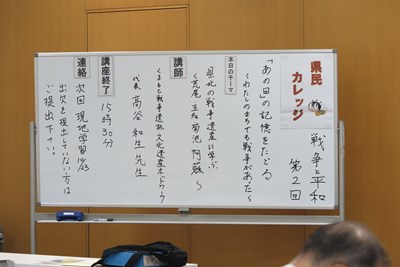 県民カレッジ
戦争と平和
第2回
本日のテーマ
「あの日」の記憶をたどる
〜わたしのまちでも戦争があった〜
県北の戦争遺産に学ぶ
〜荒尾 玉名 菊池 阿蘇〜
講師
くまもと戦争遺跡・文化遺産ネットワーク
代表 高谷 和生 先生
講座終了
15時30分
連絡
次回 現地学習 11/23
出欠を提出していない方は
ご提出下さい。